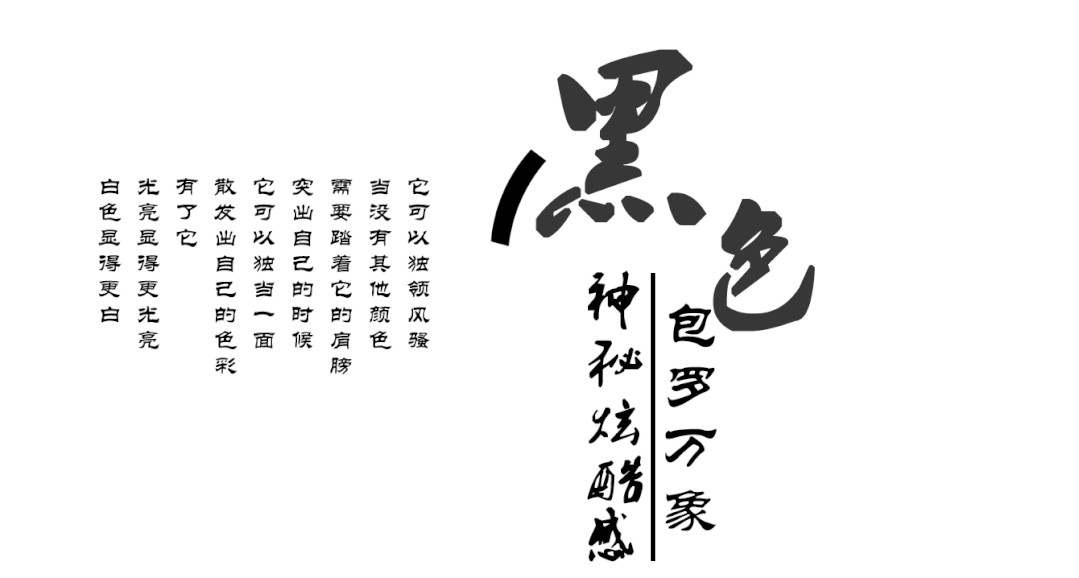 黑色
包罗万象
神秘炫酷感
它可以独领风骚
当没有其他颜色
需要踏着它的肩膀
突出自己的时候
它可以独当一面
散发出自己的色彩
有了它
光亮显得更光亮
白色显得更白